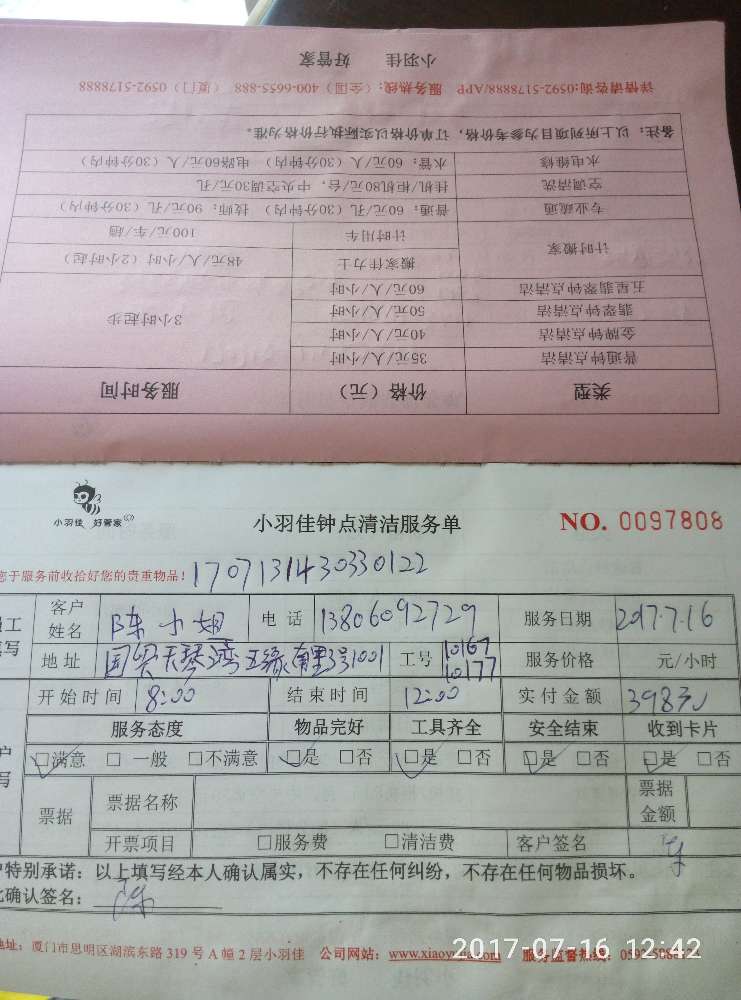 小羽佳 好管家
详情请咨询:0592-5178888/APP 服务热线:(全国)400-6655-888 (厦门)0592-5178888
备注:以上所列项目为参考价格,订单价格以实际执行价格为准。
水电维修 水管:60元/人(30分钟内) 电路60元/人(30分钟内)
空调清洗 挂机/柜机80元/台,中央空调30元/孔
专业疏通 普通:60元/孔(30分钟内) 技师:90元/孔(30分钟内)
计时搬家 计时用车 100元/车/趟
搬家佳力士 48元/人/小时(2小时起)
五星翡翠钟点清洁 60元/人/小时 3小时起步
翡翠钟点清洁 50元/人/小时
金牌钟点清洁 40元/人/小时
普通钟点清洁 35元/人/小时
类型 价格(元) 服务时间
小羽佳 好管家
小羽佳钟点清洁服务单 NO. 0097808
您于服务前收拾好您的贵重物品! 1707131430330122
员工 客户姓名 陈小姐 电话 13806092729 服务日期 2017.7.16
填写 地址 国贸天琴湾五缘东里3号1001 工号 10167 10177 服务价格 元/小时
开始时间 8:00 结束时间 12:00 实付金额 398元
服务态度 物品完好 工具齐全 安全结束 收到卡片
户 写 □满意 □一般 □不满意 □是 □否 □是 □否 □是 □否 □是 □否
票据 票据名称 票据金额
开票项目 □服务费 □清洁费 客户签名
户特别承诺:以上填写经本人确认属实,不存在任何纠纷,不存在任何物品损坏。
此确认签名: 陈
地址:厦门市思明区湖滨东路319号A幢2层小羽佳 公司网站: 服务监督热线:
2017-07-16 12:42